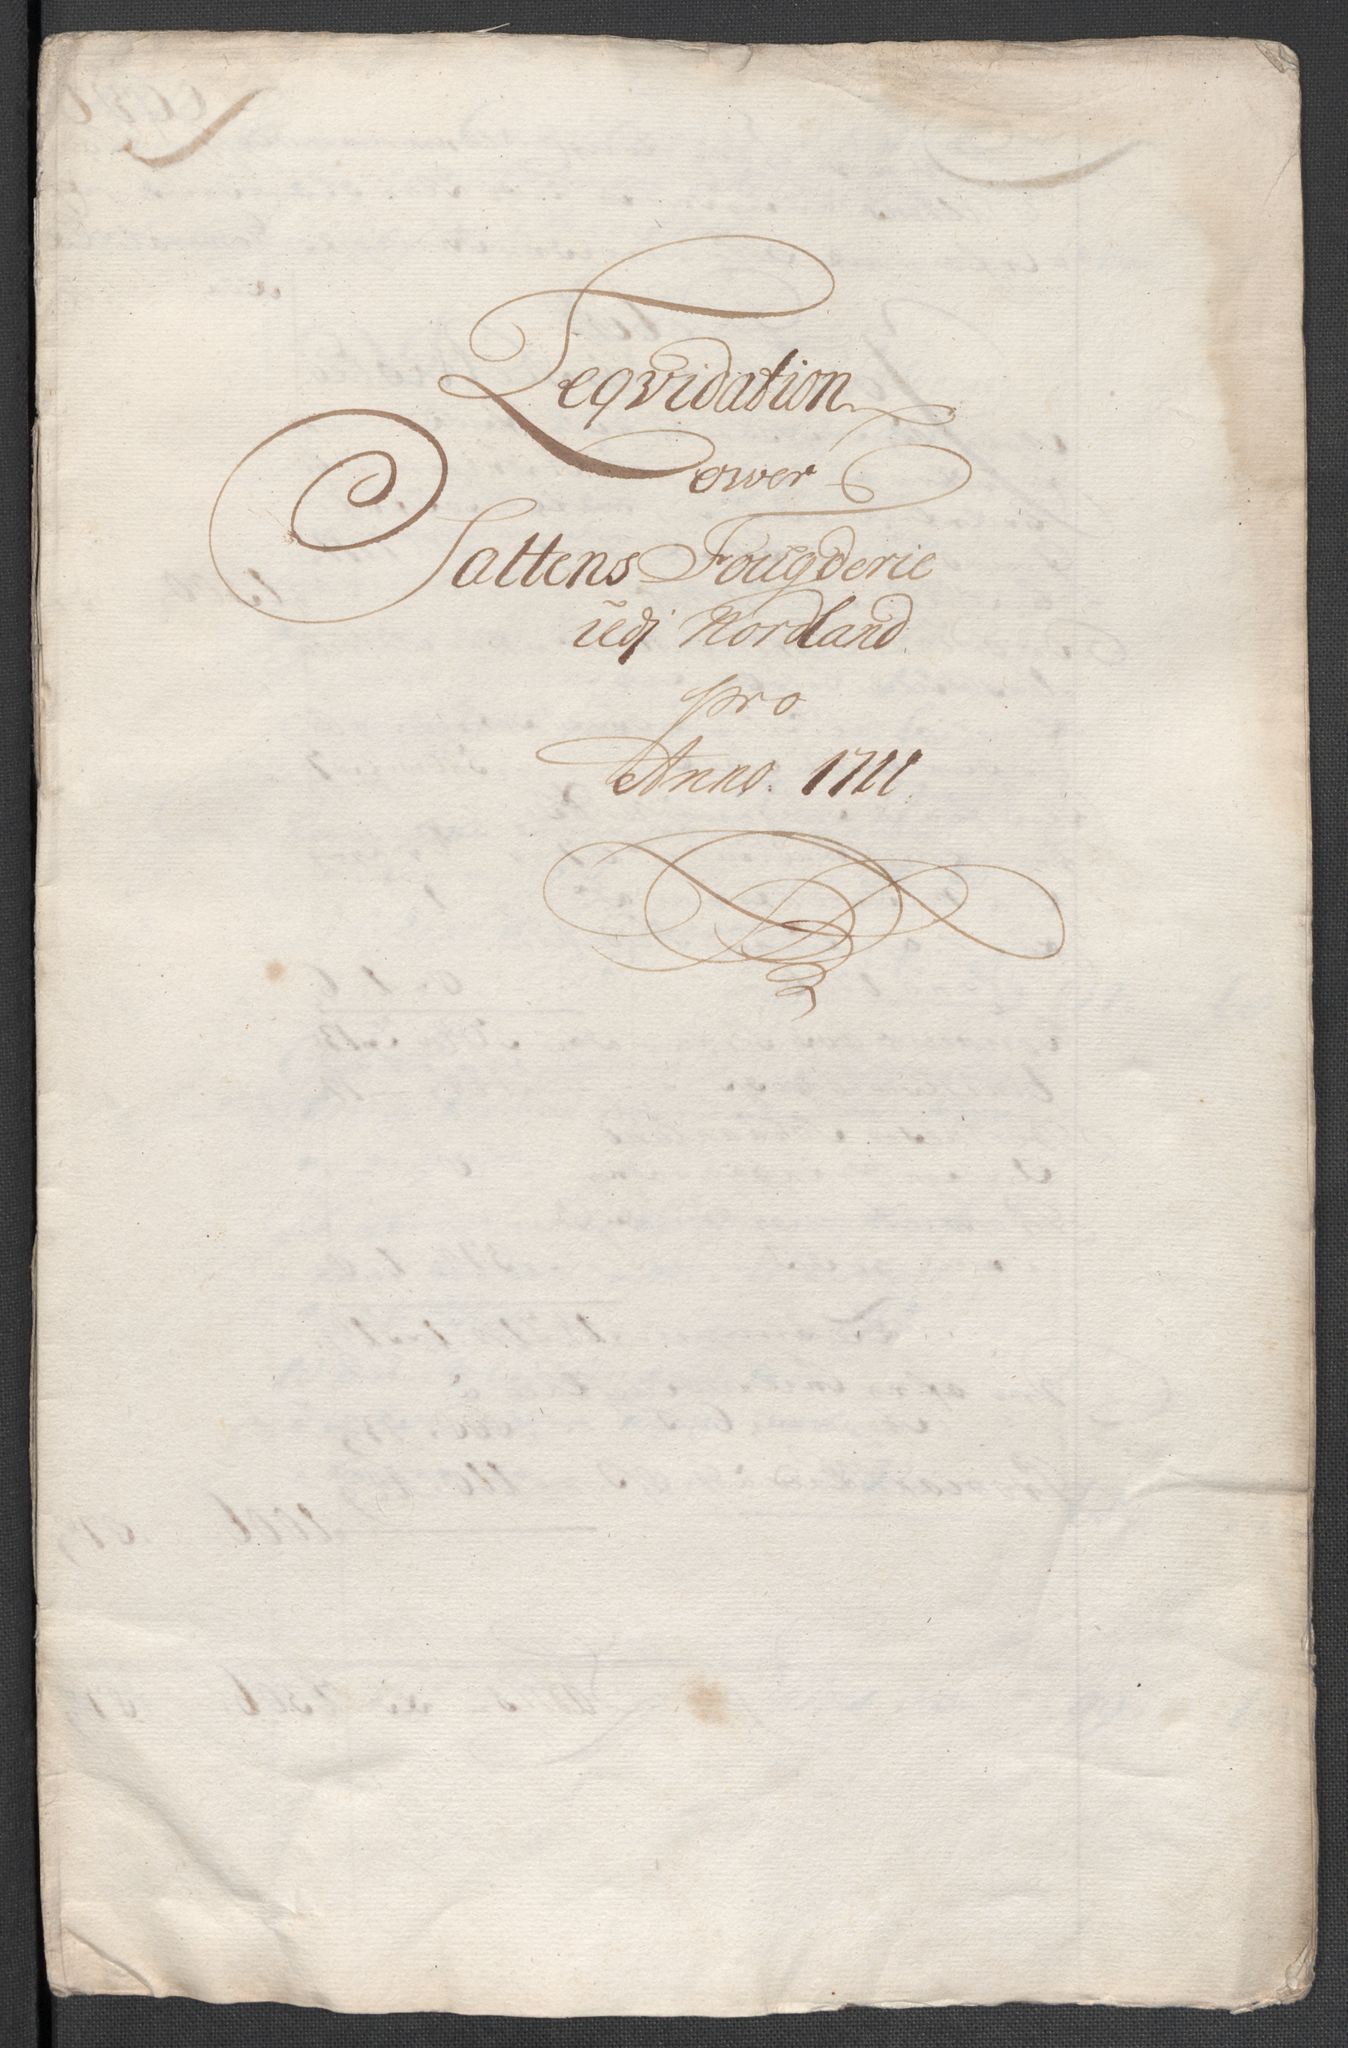 Leqvidation
ower
Saltens Fougderie
udj Nordland.
pro
Anno. 1711